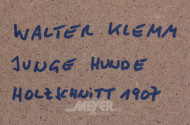 WALTER KLEMM
JUNGE HUNDE
HOLZSCHNITT 1907
MEYER